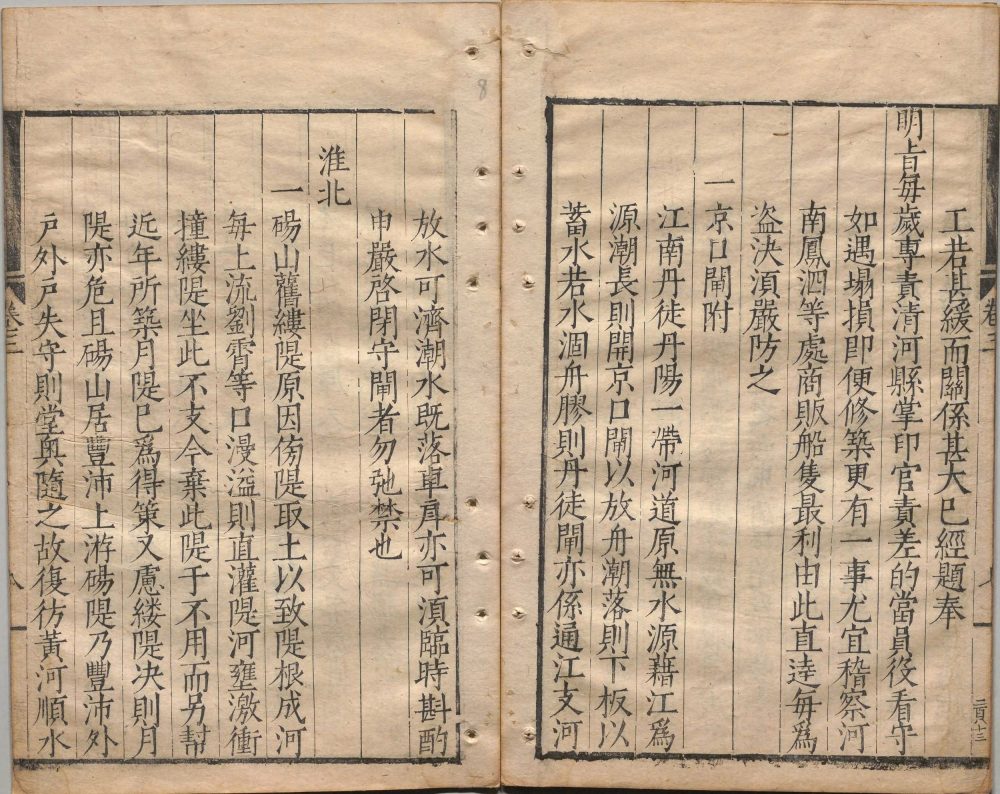 工若甚緩而關係甚大已經題奉
明旨每歲專責清河縣掌印官責差的當員役看守
如遇塌損即便修築更有一事尤宜稽察河
南鳳泗等處商販船隻最利由此直達每為
盜決須嚴防之
一京口閘附
江南丹徒丹陽一帶河道原無水源藉江爲
源潮長則開京口閘以放舟潮落則下板以
蓄水若水涸舟膠則丹徒閘亦係通江支河
放水可濟潮水既落車戽亦可須臨時斟酌
申嚴啓閉守閘者勿弛禁也
淮北
一碭山舊縷隄原因傍隄取土以致隄根成河
每上流劉霄等口漫溢則直灌隄河壅激衝
撞縷隄坐此不支今棄此隄于不用而另幇
近年所築月隄已爲得策又慮縷隄决則月
隄亦危且碭山居豐沛上游碭隄乃豐沛外
戶外戶失守則堂奧隨之故復彷黃河順水
卷三
卷三